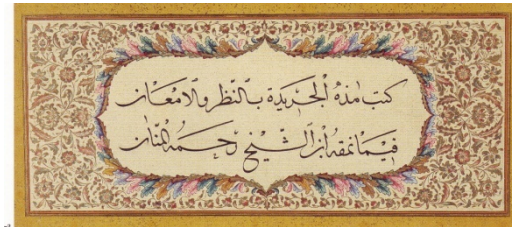 كتب هذه الجريدة بالنظر والامعان
فيما نمقه ابن الشيخ رحمه المنان